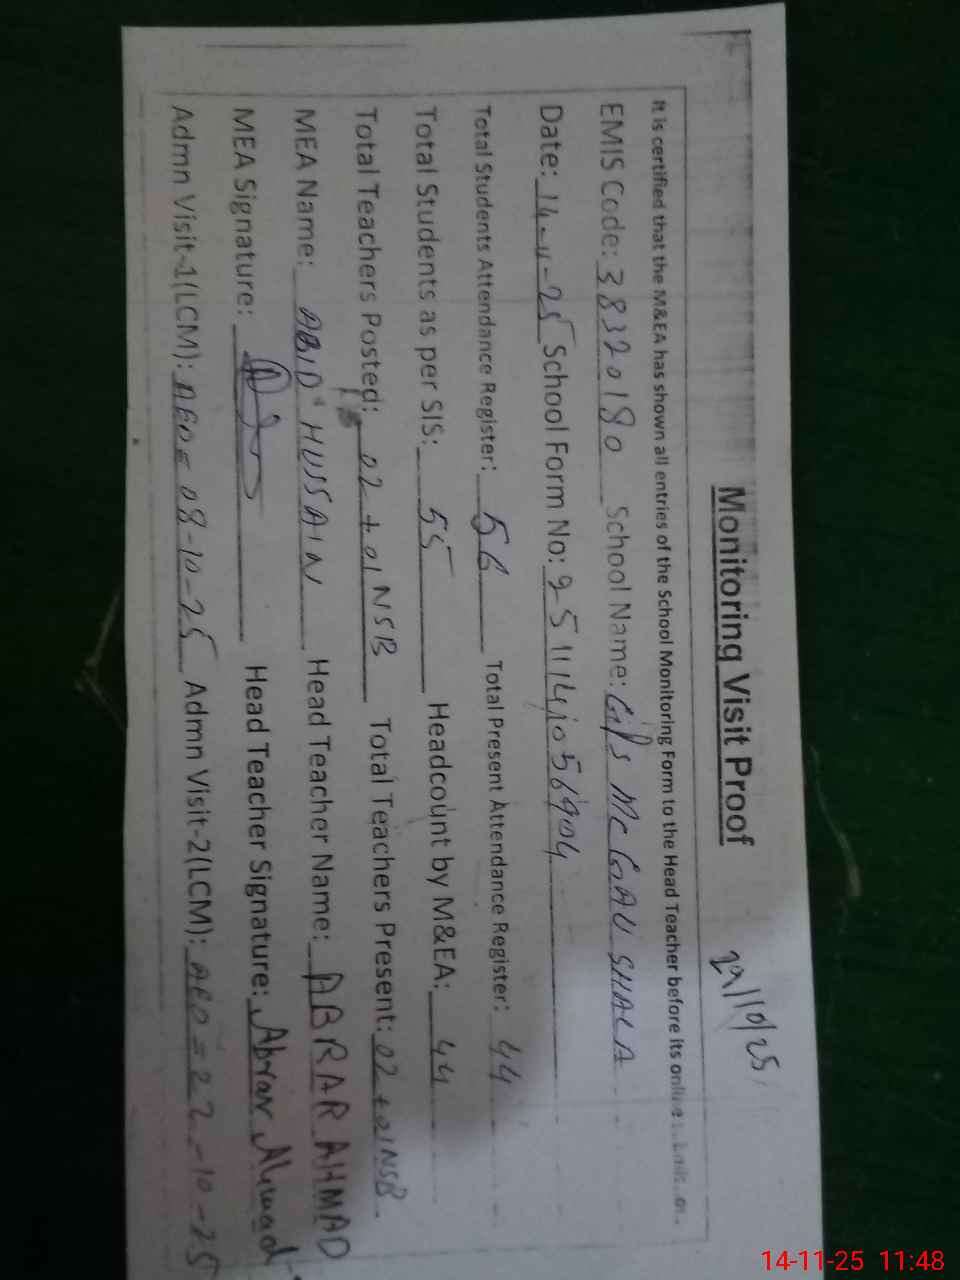 29/10/25
Monitoring Visit Proof
It is certified that the M&EA has shown all entries of the School Monitoring Form to the Head Teacher before its online
EMIS Code: 38320180 School Name: GPS MC GAU SHALA
Date: 14-11-25 School Form No:
Total Students Attendance Register: 56 Total Present Attendance Register: 44
Total Students as per SIS: 55 Headcount by M&EA: 44
Total Teachers Posted: 02 + 01 NSB Total Teachers Present: 02 + 01 NSB
MEA Name: ABID HUSSAIN Head Teacher Name: ABRAR AHMAD
MEA Signature: Head Teacher Signature: Abrar Ahmad
Admn Visit-1(LCM): AEO = 08-10-25 Admn Visit-2(LCM): AEO = 22-10-25
14-11-25 11:48